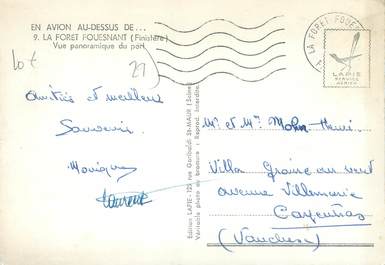 EN AVION AU-DESSUS DE...
9. LA FORET FOUESNANT (Finistère)
Vue panoramique du port
29
LA FORET FOUESN
LAPIE
SERVICE
AERIEN
Amitiés et meilleurs
Souvenirs
Monique
Laurent
Edition LAPIE - 123 rue Garibaldi St-MAUR (Seine)
Véritable photo au bromure : Reprod. Interdite
Mr et Mme Henri
Villa Graine au vent
avenue Villemarie
Carpentras
(Vaucluse)